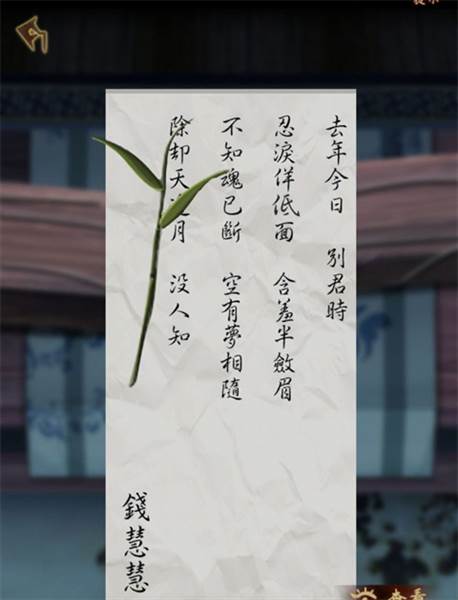 去年今日 別君時
忍淚佯低面 含羞半斂眉
不知魂已斷 空有夢相隨
除却天月 没人知
錢慧慧